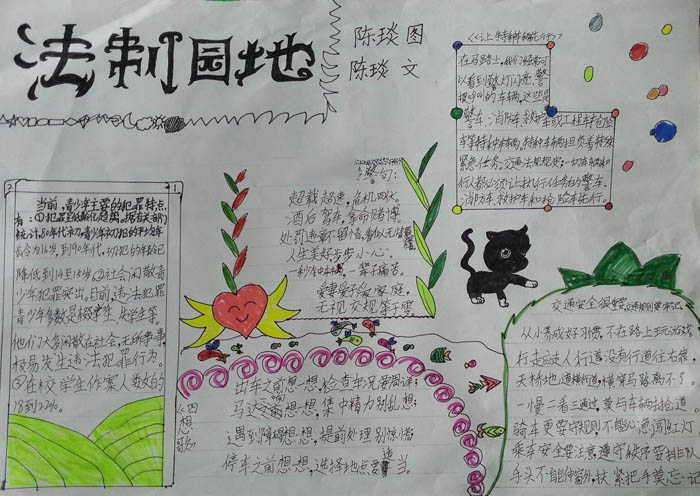 法制园地
陈琰 图
陈琰 文
《让特种车先行》
在马路上，我们经常可
以看到警灯闪亮、警
报呼叫的车辆，这些是
警车、消防车、救护车或工程车抢险
车等特种车辆。特种车辆担负着特殊
紧急任务。交通法规规定：一切车辆和
行人都必须让执行任务的警车、
消防车、救护车和抢险车先行。
警句：
超载超速，危机四伏。
酒后驾车，拿命赌博
处罚违章不留情，看似无情
人生美好步步小心。
一秒
一辈子痛苦。
爱妻爱子爱家庭，
无视交规等于零
2
1
当前，青少年主要的犯罪特点
有：①犯罪低龄化趋势。据有关部门
统计，80年代初，青少年初犯的平均年
龄为16岁，到90年代，初犯的年龄已
降低到14至15岁。②社会闲散青
少年犯罪突出。目前违法犯罪
青少年多数是
失学生等。
他们大多闲散在社会，无所事事
极易发生违法犯罪行为。
③在校学生作案人数大约
18到22%。
《四想歌》
出车之前想一想，检查车况要周详；
马达一响想一想，集中精力别乱想；
遇到障碍想一想，提前处理别惊慌
停车之前想一想，选择地点要适当。
交通安全很重要，交通规则要牢记，
从小养成好习惯，不在路上玩游戏
行走应走人行道，没有行道往右靠
天桥地道横行道，横穿马路离不了
一慢二看三通过，莫与车辆去抢道
骑车更要守规则，不能心急闯红灯
乘车安全要注意，遵守秩序要排队
手头不能伸窗外，扶紧把手莫忘记